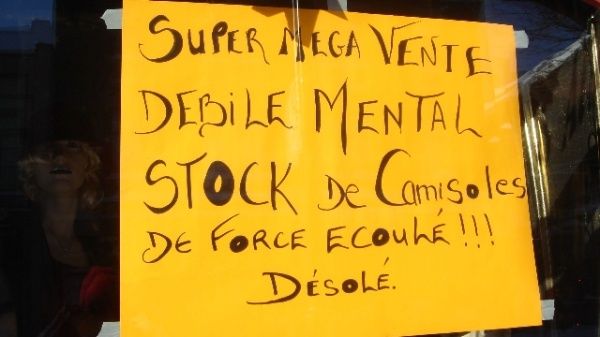 SUPER MEGA VENTE
DEBILE MENTAL
STOCK De Camisoles
DE FORCE ECOULÉ !!!
DÉSOLÉ.